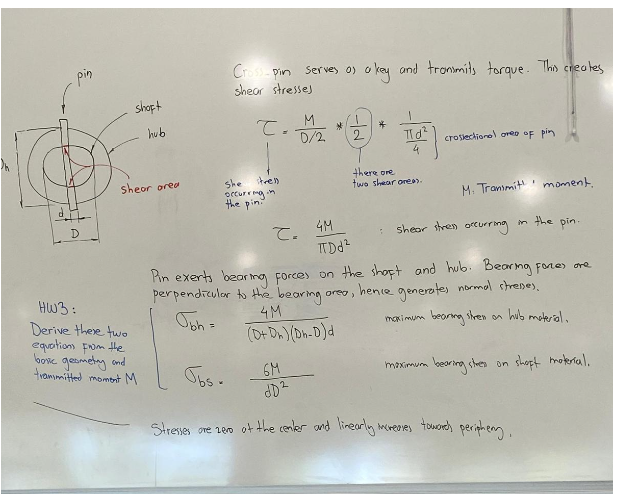 pin
shaft
hub
shear area
d
D
Cross-pin serves as a key and transmits torque. This creates
shear stresses
τ = M / (D/2) * 1/2 * 1 / (πd²/4) } crossectional area of pin
She stress
occurring in
the pin.
there are
two shear areas.
M: Transmitt moment.
τ = 4M / πDd² : shear stress occurring in the pin.
Pin exerts bearing forces on the shaft and hub. Bearing forces are
perpendicular to the bearing area, hence generates normal stresses.
HW3:
Derive these two
equations from the
basic geometry and
transmitted moment M
σbh = 4M / (D+Dh)(Dh-D)d maximum bearing stress on hub material.
σbs = 6M / dD² maximum bearing stress on shaft material.
Stresses are zero at the center and linearly increases towards periphery.